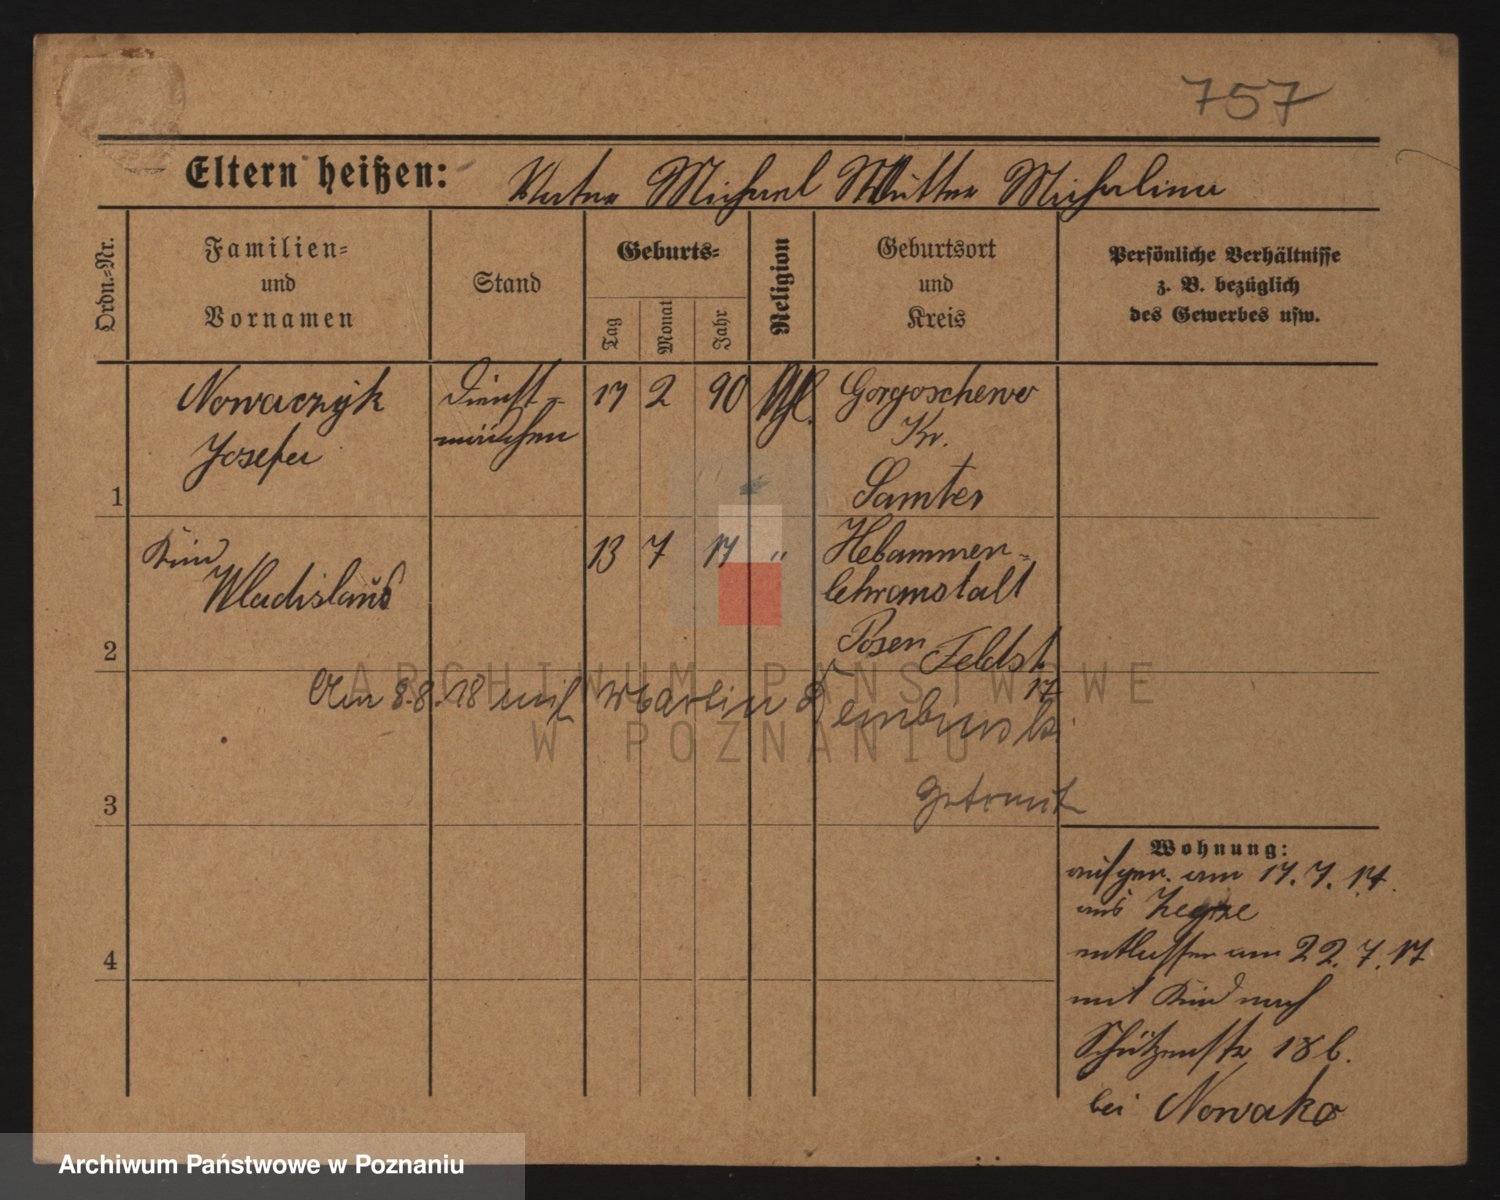 757
Eltern heißen: Vater Michael Mutter Michalina
Ordn.-Nr.
Familien-
und
Vornamen
Stand
Geburts-
Tag
Monat
Jahr
Religion
Geburtsort
und
Kreis
Persönliche Verhältnisse
z. B. bezüglich
des Gewerbes usw.
1
Nowaczyk
Josefa
Dienst-
mädchen
17 2 90
Gorgoschewo
Kr.
Samter
2
Kind
Wladislaus
13 7 17 "
Hebammen-
lehranstalt
Posen Feldst
17
Am 8.8.18 mit Martin Dembinski
getraut
3
4
Wohnung:
aufgen. am 17.7.17.
aus Zegrze
entlassen am 22.7.17
mit Kind nach
Schützenstr 18 b.
bei Nowako
ARCHIWUM PAŃSTWOWE
W POZNANIU
Archiwum Państwowe w Poznaniu